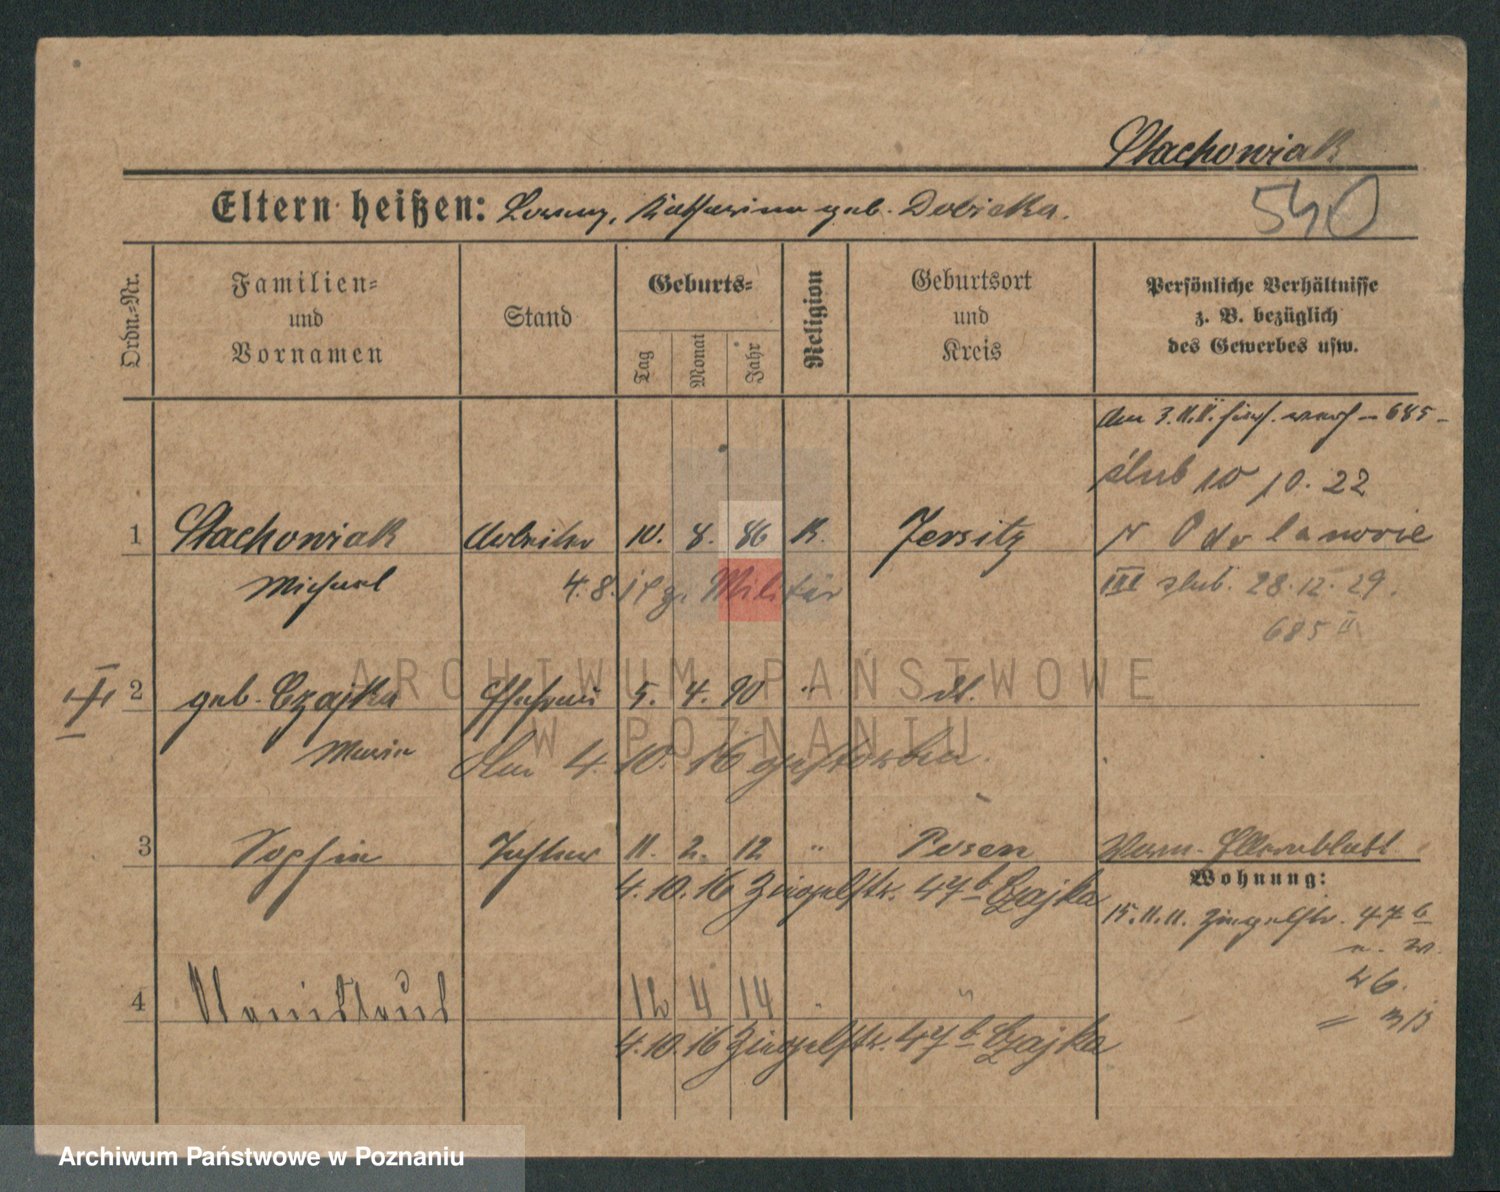 Stachowiak
540
Eltern heißen: Lorenz, Katharina geb. Dobicka.
Ordn.-Nr.
Familien- und Vornamen
Stand
Geburts-
Tag
Monat
Jahr
Religion
Geburtsort und Kreis
Persönliche Verhältnisse
z. B. bezüglich
des Gewerbes usw.
Am 3.11.11. 685
ślub 10 10. 22
w Odolanowie
III ślub. 28.12.29.
685 II
1 Stachowiak Arbeiter 10. 8. 86 K. Jersitz
Michael 4.8. z. Militär
2 geb. Czajka Ehefrau 5. 4. 90 " dt.
Maria Am 4. 10. 16 gestorben.
3 Sophia Tochter 11. 2. 12 " Posen
4.10.16 Ziegelstr. 47 b Czajka
Elternblatt
Wohnung:
15.11.11. Ziegelstr. 47 b
4 Stanislaus 12 4 14 " "
4.10.16 Ziegelstr. 47 b Czajka
ARCHIWUM PAŃSTWOWE
W POZNANIU
Archiwum Państwowe w Poznaniu